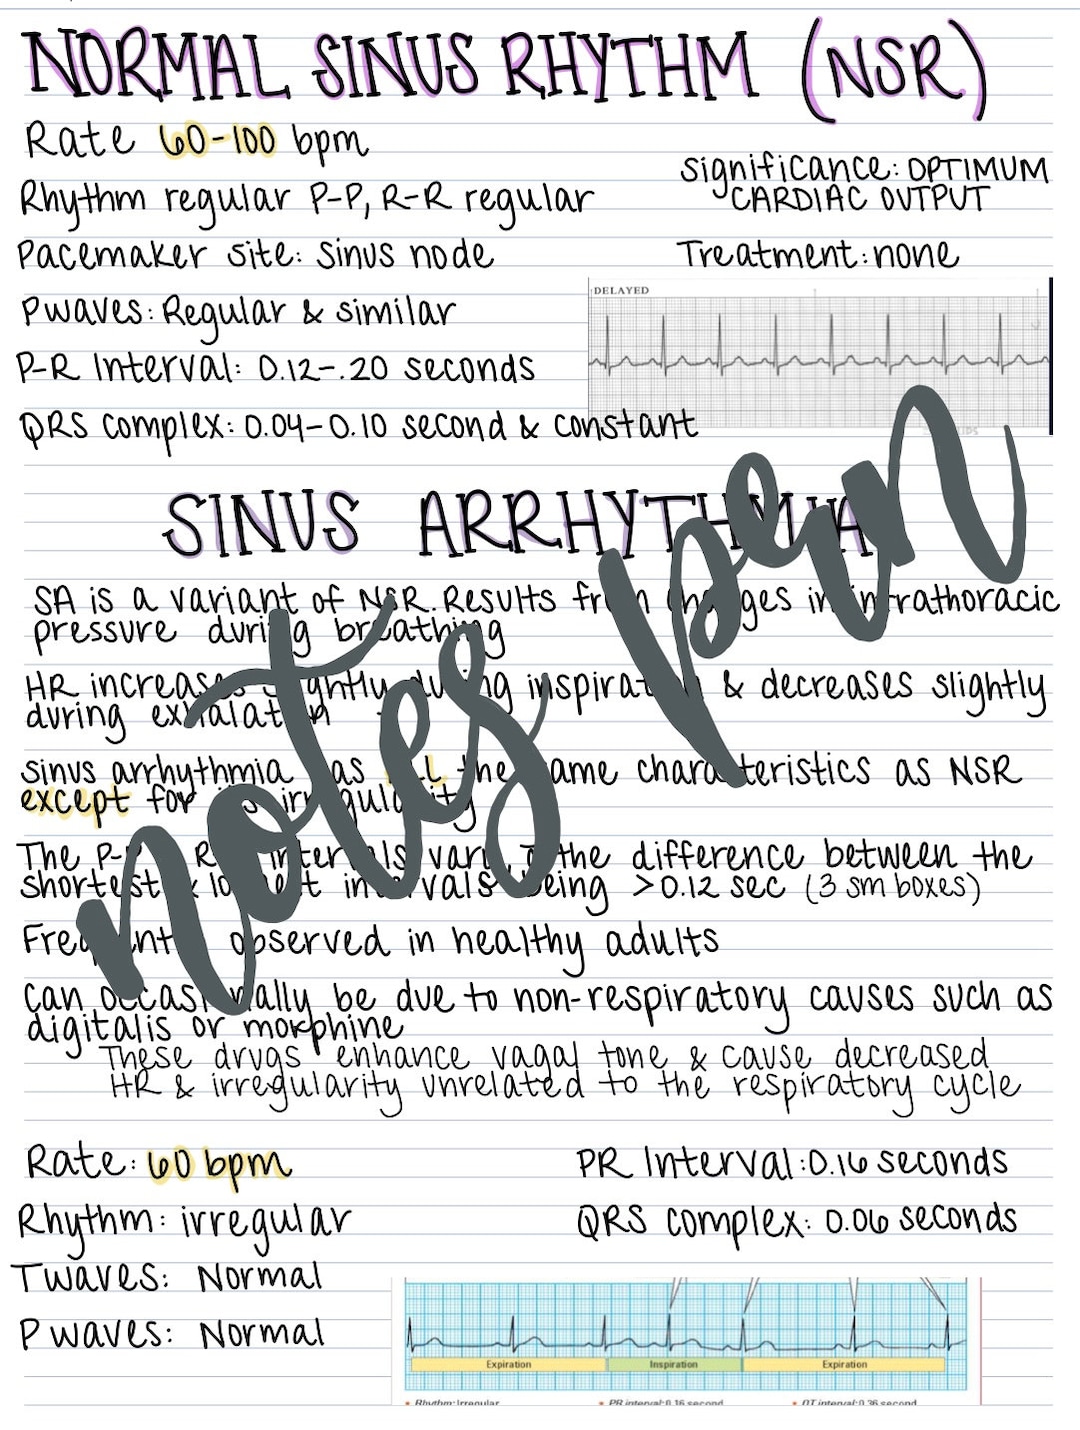 NORMAL SINUS RHYTHM (NSR)
Rate 60-100 bpm
Rhythm regular P-P, R-R regular
Pacemaker Site: Sinus node
P waves: Regular & similar
P-R Interval: 0.12-.20 seconds
QRS complex: 0.04-0.10 second & constant
Significance: OPTIMUM
CARDIAC OUTPUT
Treatment: none
DELAYED
SINUS ARRHYTHMIA
SA is a variant of NSR. Results from changes in intrathoracic
pressure during breathing
HR increases slightly during inspiration & decreases slightly
during exhalation
sinus arrhythmia has ALL the same characteristics as NSR
except for its irregularity
The P-P & R-R intervals vary, the difference between the
shortest & longest intervals being >0.12 sec (3 sm boxes)
Frequently observed in healthy adults
Can occasionally be due to non-respiratory causes such as
digitalis or morphine
These drugs enhance vagal tone & cause decreased
HR & irregularity unrelated to the respiratory cycle
notes pen
Rate: 60 bpm
Rhythm: irregular
T waves: Normal
P waves: Normal
PR Interval: 0.16 seconds
QRS complex: 0.06 seconds
Expiration Inspiration Expiration
• Rhythm: Irregular • PR interval: 0.16 second • QT interval: 0.36 second